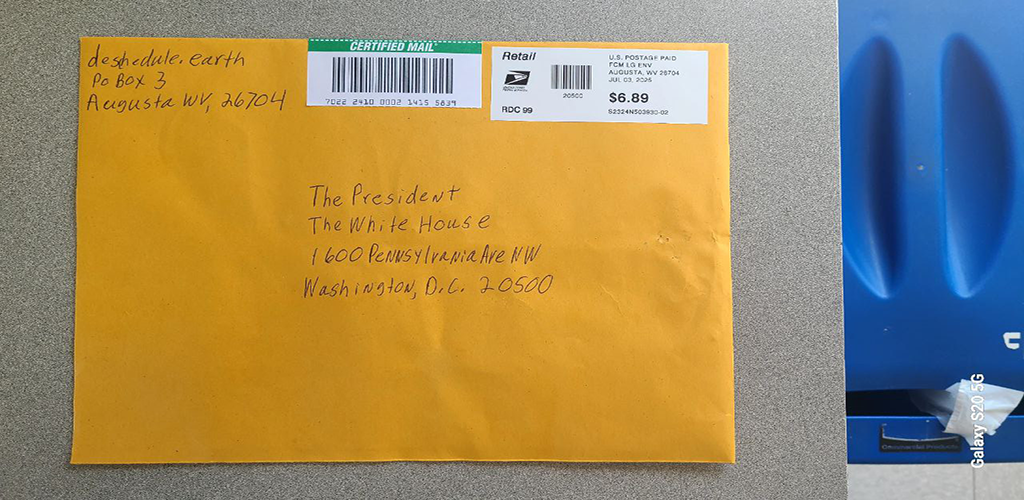 deshedule.earth
Po Box 3
Augusta WV, 26704
CERTIFIED MAIL
7022 2410 0002 1415 5839
Retail
RDC 99
20500
U.S. POSTAGE PAID
FCM LG ENV
AUGUSTA, WV 26704
JUL 03, 2025
$6.89
The President
The White House
1600 Pennsylvania Ave NW
Washington, D.C. 20500
Galaxy S20 5G